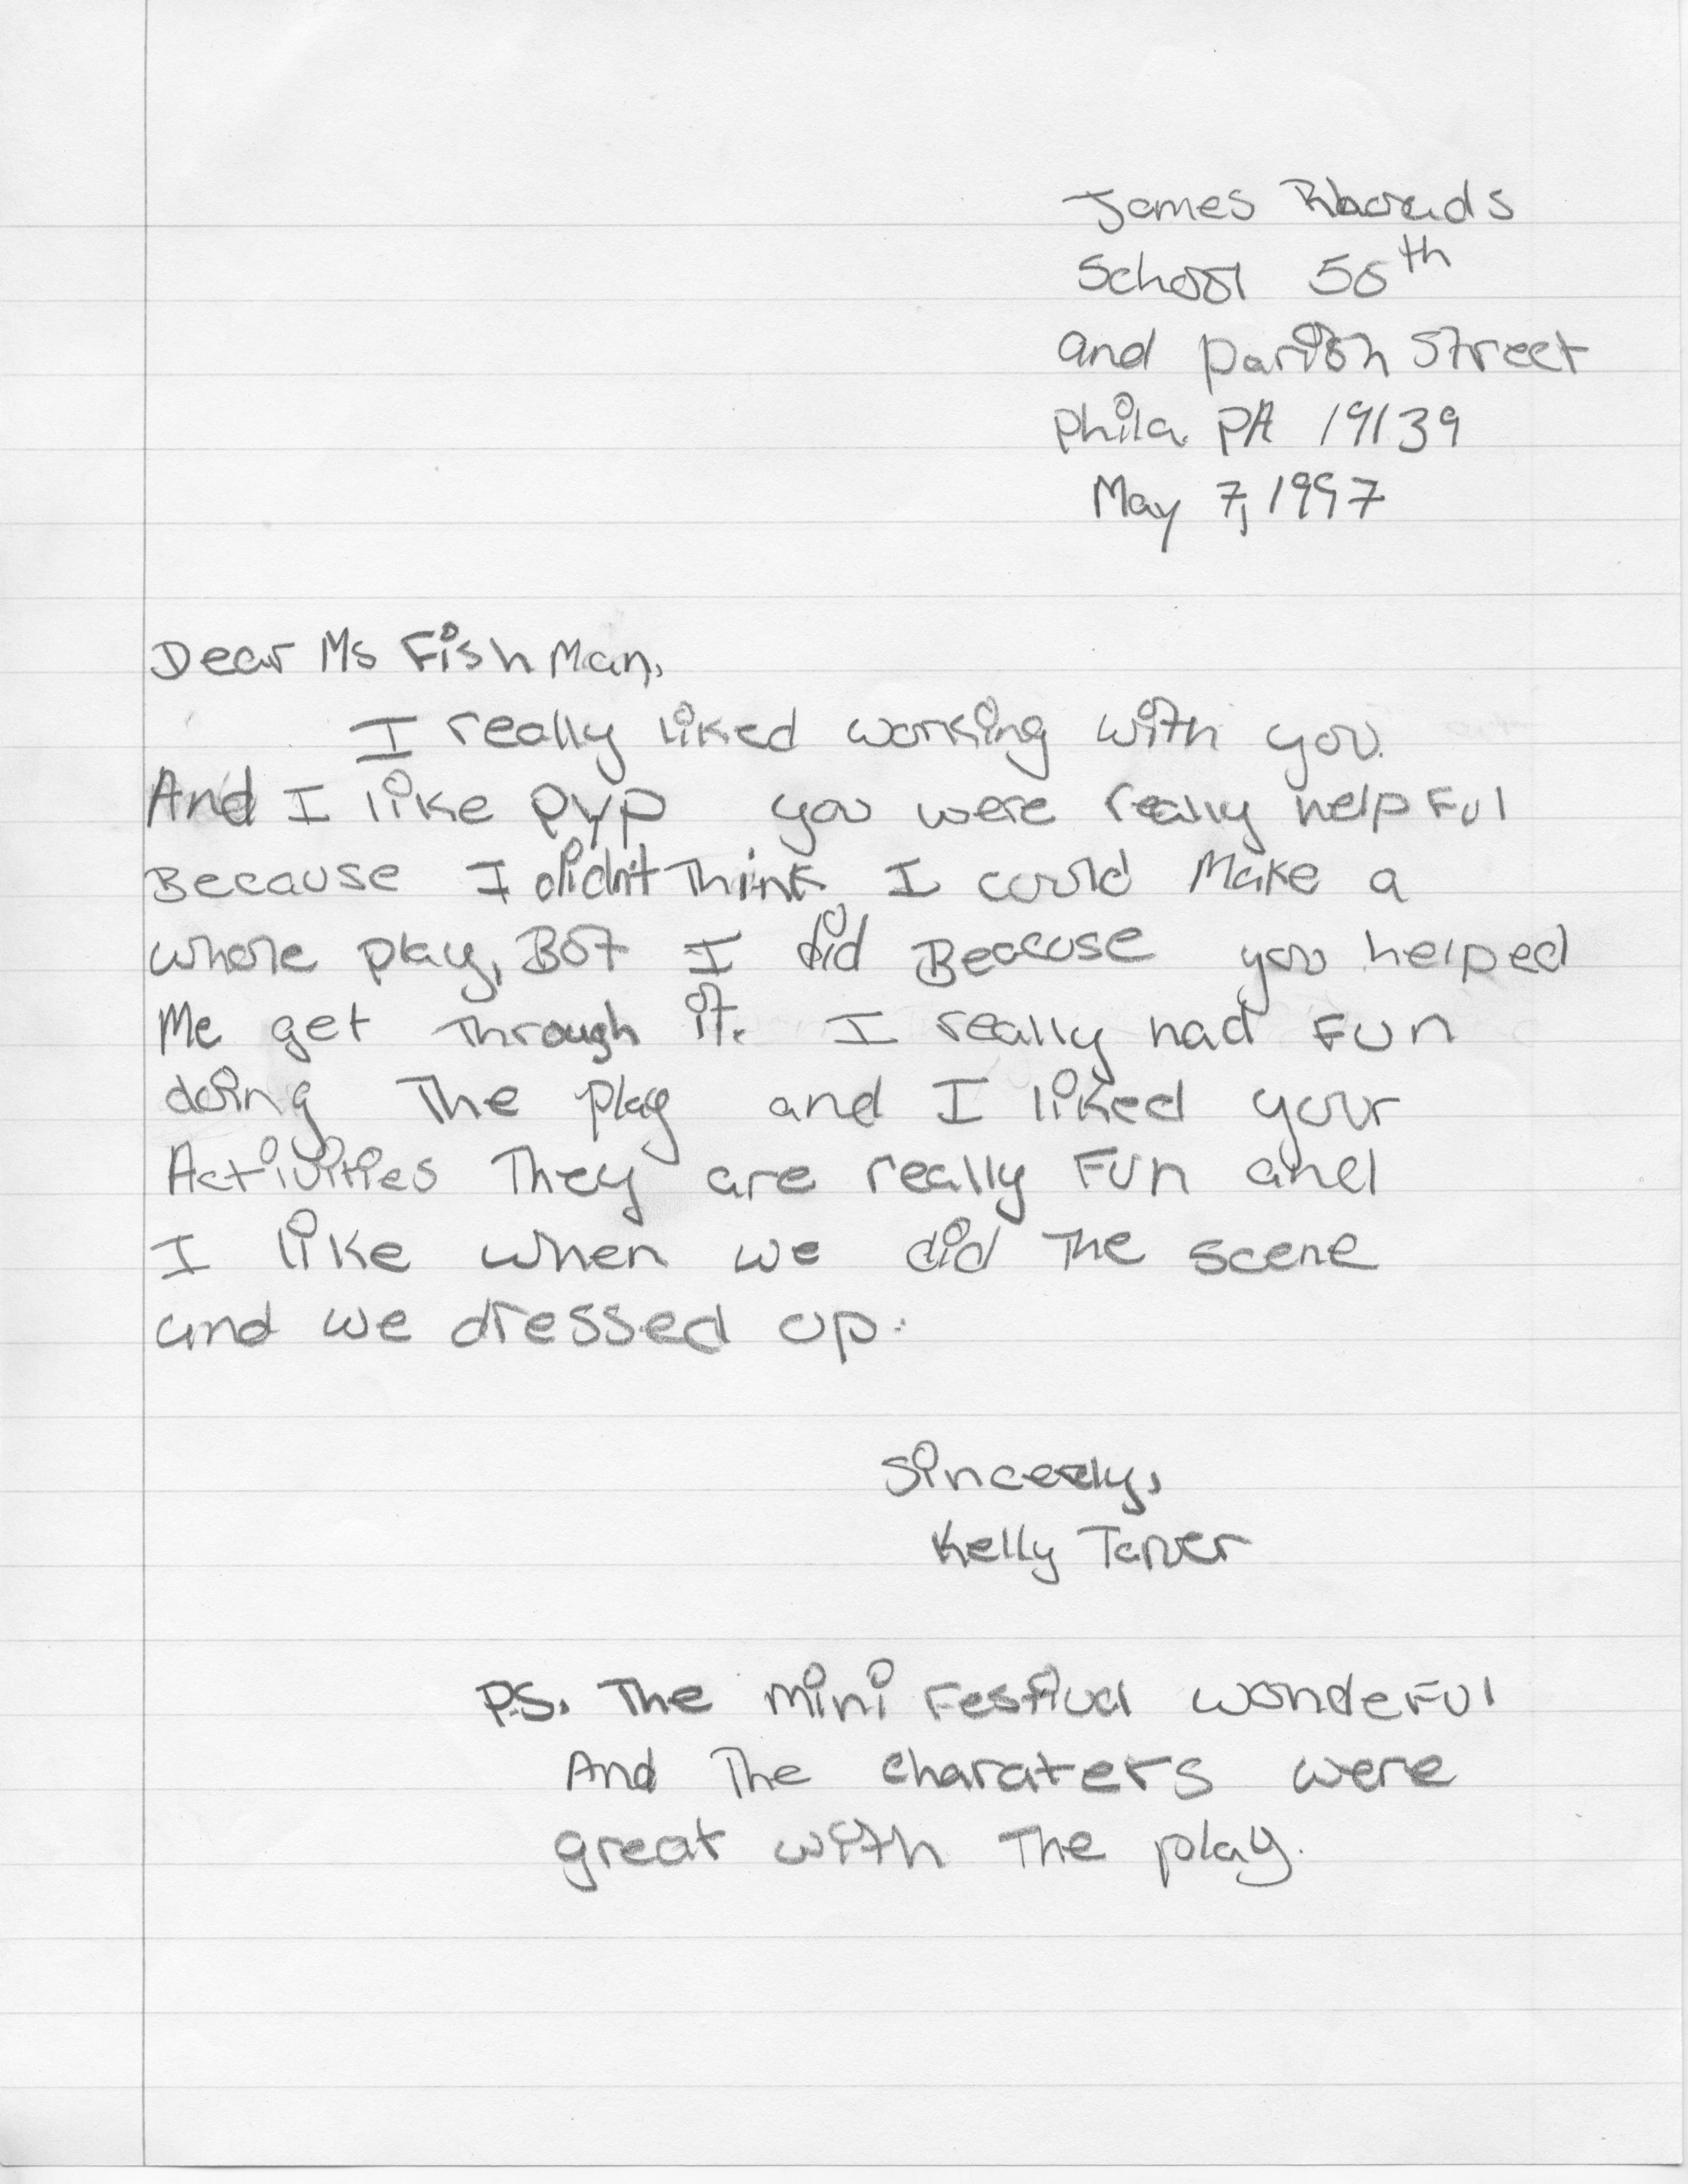 James
School 50th
and parish street
phila. PA 19139
May 7, 1997
Dear Ms Fish Man,
I really liked working with you.
And I like PYP you were really helpful
Because I didn't Think I could Make a
whole play, But I did Beacuse you helped
Me get Through it. I really had Fun
doing The play and I liked your
Activities They are really Fun and
I like when we did The scene
and we dressed up.
Sincerely,
Kelly Tarver
P.S. The mini Festival wonderFul
And The charaters were
great with The play.